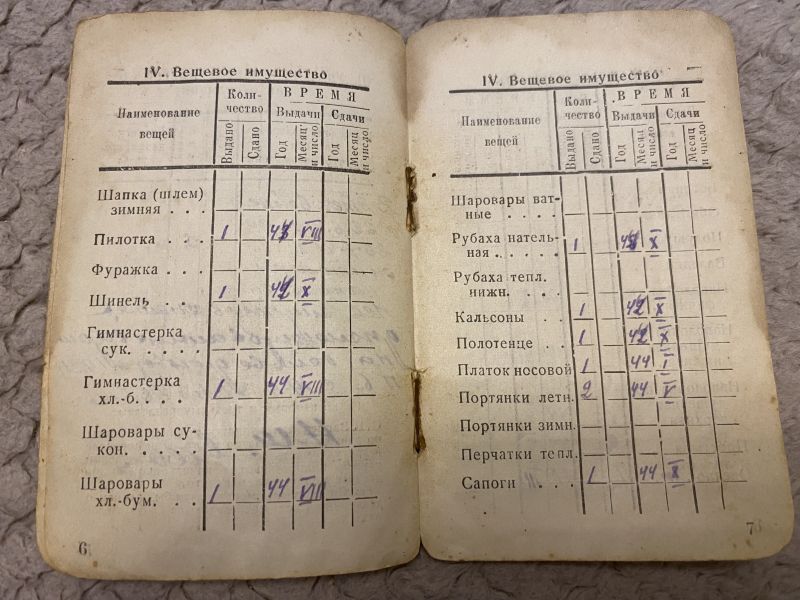 IV. Вещевое имущество
Наименование
вещей
Коли-
чество
ВРЕМЯ
Выдачи
Сдачи
Выдано
Сдано
Год
Месяц
и число
Год
Месяц
и число
Шапка (шлем)
зимняя . . .
Пилотка . . . 1 VIII
Фуражка . . .
Шинель . . . 1 42 X
Гимнастерка
сук. . . . . .
Гимнастерка
хл.-б. . . . 1 44 VIII
Шаровары су-
кон. . . . .
Шаровары
хл.-бум. . . 1 44 VIII
6
IV. Вещевое имущество
Наименование
вещей
Коли-
чество
ВРЕМЯ
Выдачи
Сдачи
Выдано
Сдано
Год
Месяц
и число
Год
Месяц
и число
Шаровары ват-
ные . . . .
Рубаха натель-
ная . . . . . 1 X
Рубаха тепл.
нижн. . . . .
Кальсоны . . 1 42 X
Полотенце . . 1 42 X
Платок носовой 1 44 I
Портянки летн. 2 44 V
Портянки зимн.
Перчатки тепл.
Сапоги . . . 1 44 X
7